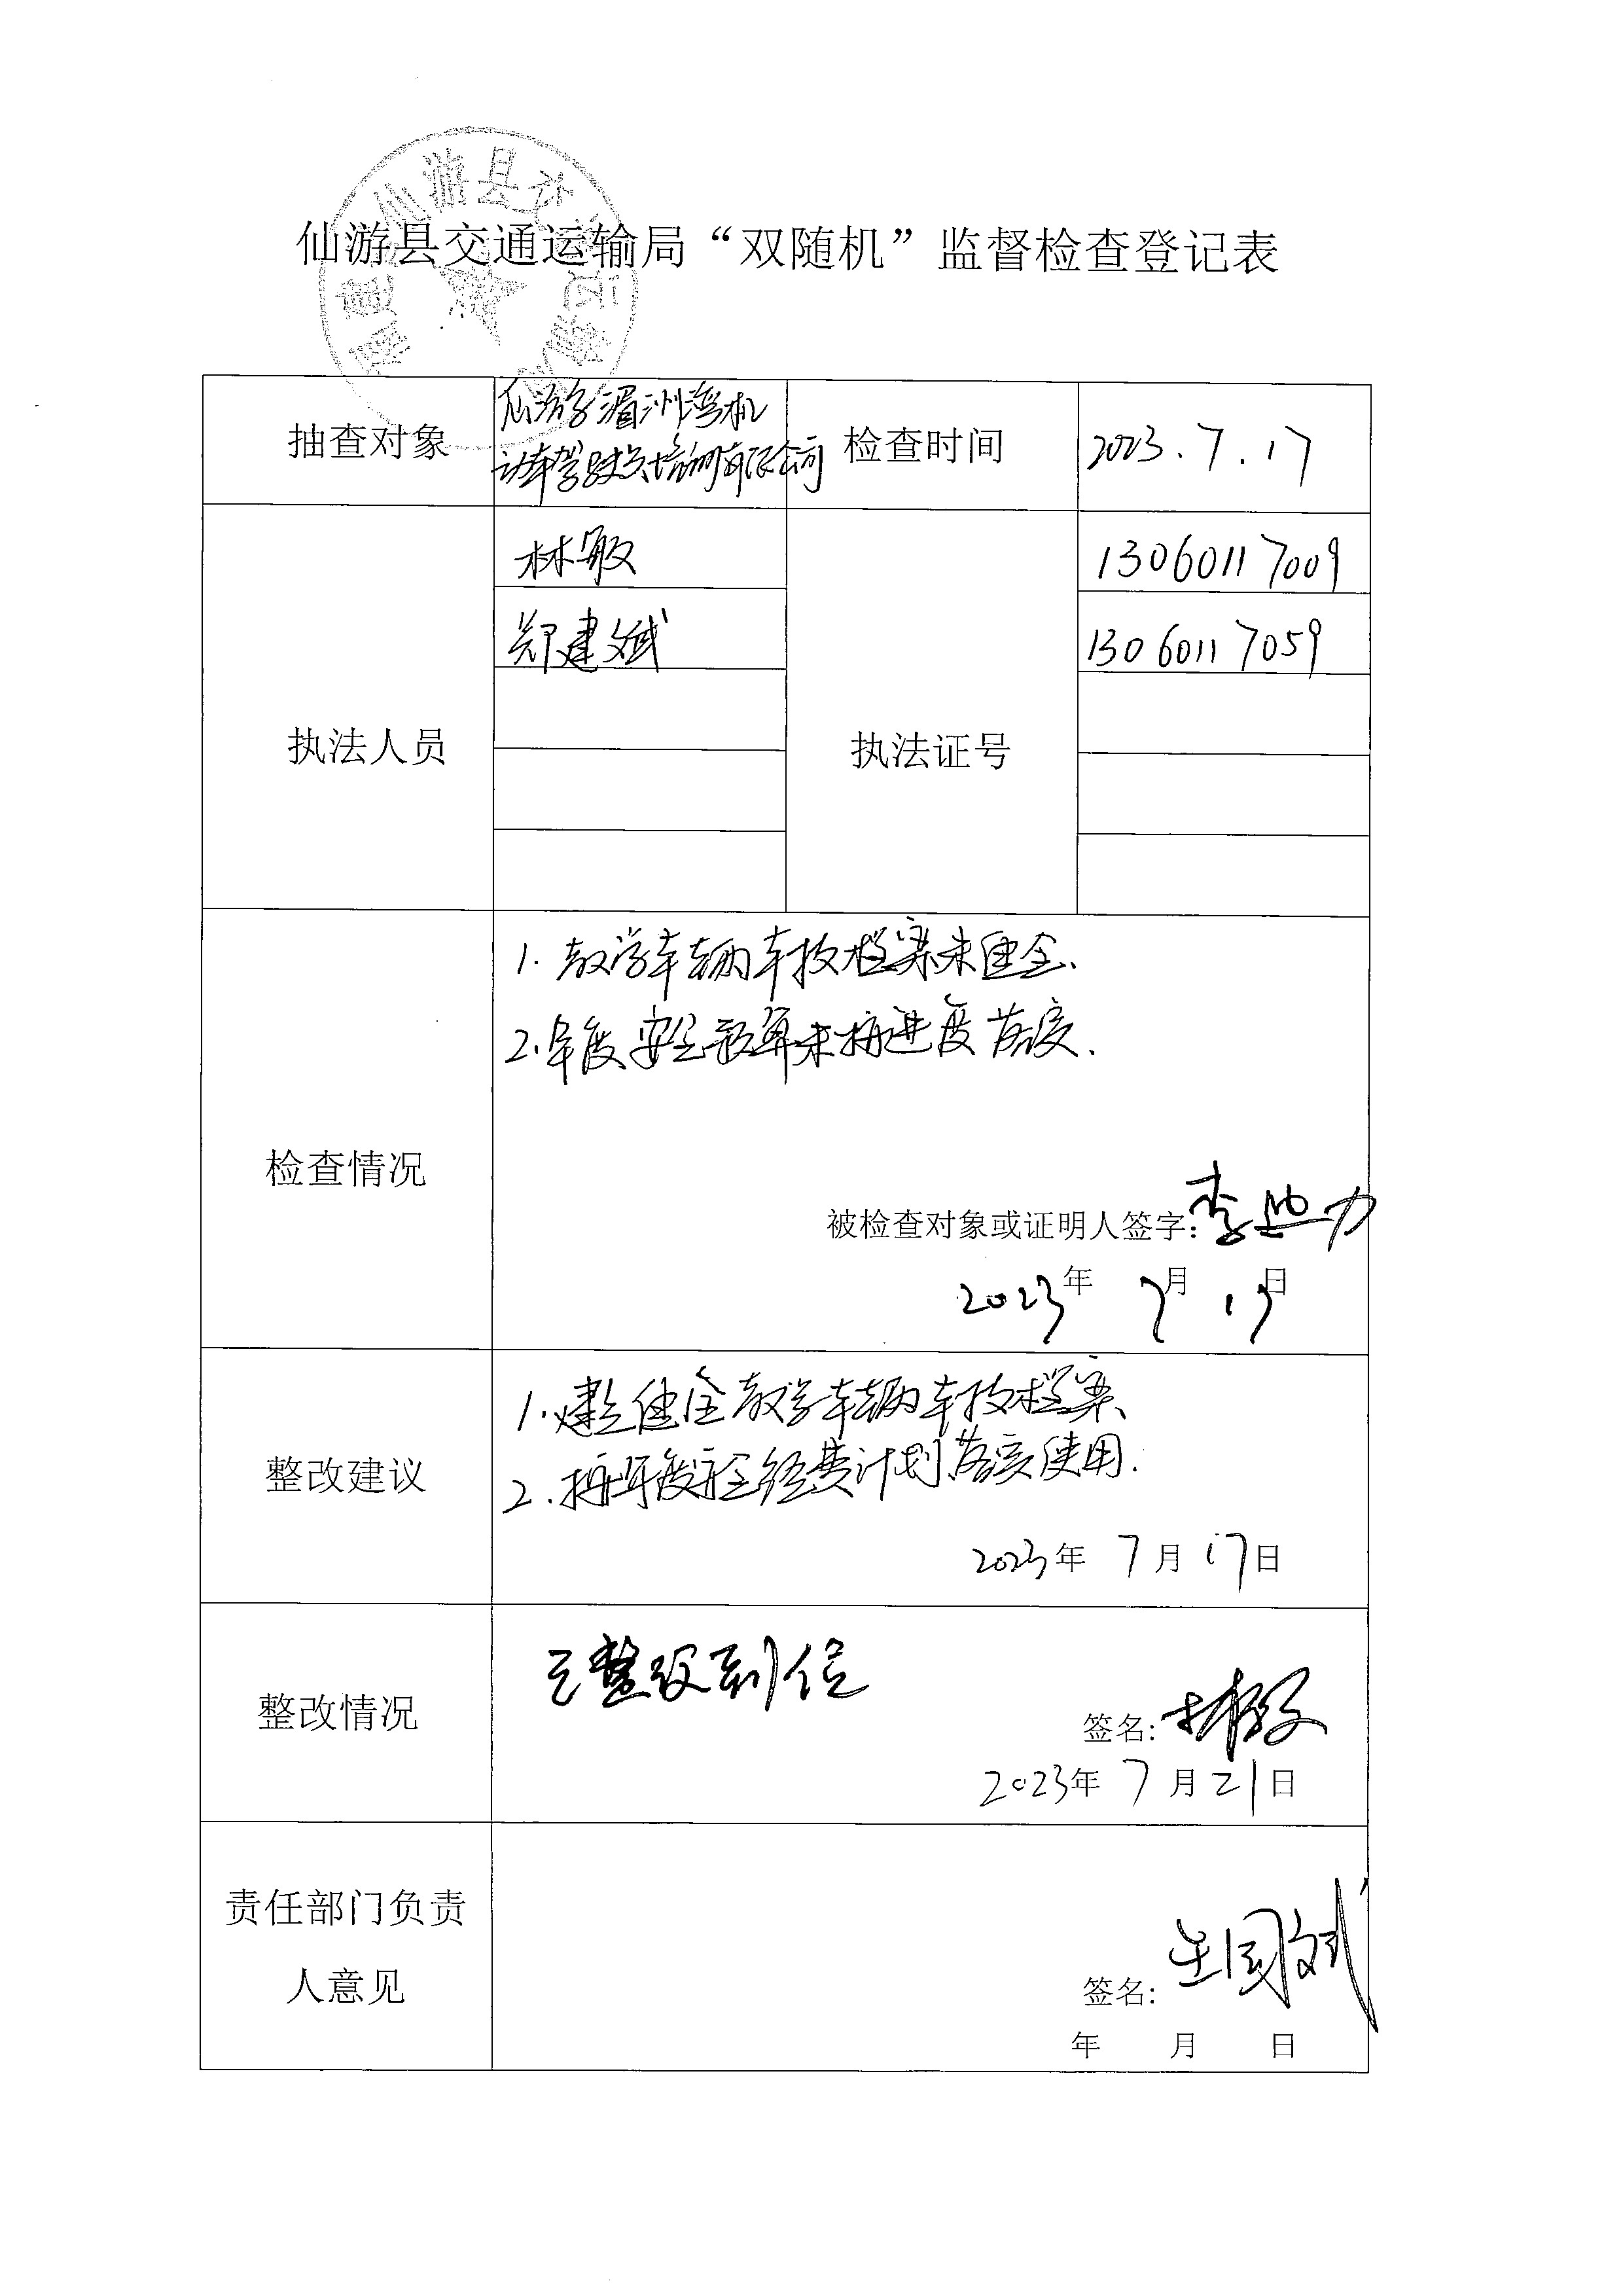 仙游县交通运输局“双随机”监督检查登记表
抽查对象
仙游县湄洲湾机
动车驾驶员培训有限公司
检查时间
2023.7.17
执法人员
林敏
郑建斌
执法证号
13060117009
13060117059
检查情况
1.教学车辆车技档案未健全、
2.年度安全预算未按进度落实.
被检查对象或证明人签字:
2023年 7月 17日
整改建议
1.建立健全教学车辆车技档案、
2.按年度安全经费计划落实使用.
2023年 7月17日
整改情况
已整改到位
签名:林敏
2023年 7月21日
责任部门负责
人意见
签名:
年 月 日